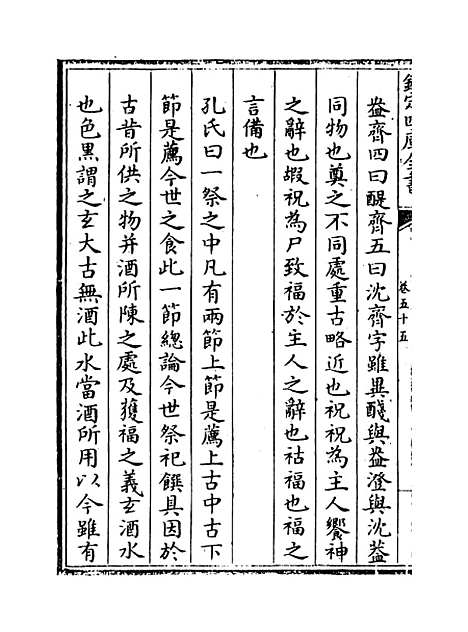 欽定四庫全書
卷五十五
盎齊四曰醍齊五曰沈齊字雖異醆與盎澄與沈葢
同物也奠之不同處重古略近也祝祝為主人饗神
之辭也嘏祝為尸致福於主人之辭也祜福也福之
言備也
孔氏曰一祭之中凡有兩節上節是薦上古中古下
節是薦今世之食此一節總論今世祭祀饌具因於
古昔所供之物并酒所陳之處及獲福之義玄酒水
也色黑謂之玄大古無酒此水當酒所用以今雖有